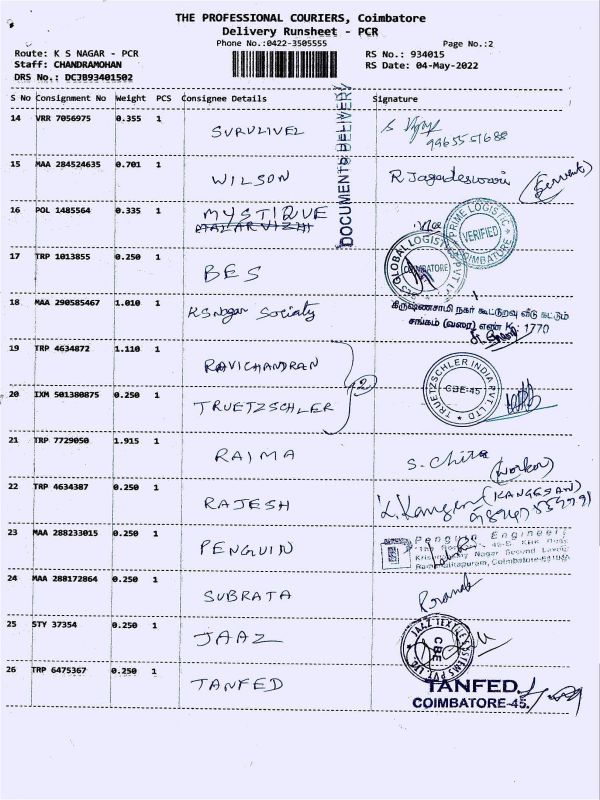 THE PROFESSIONAL COURIERS, Coimbatore
Delivery Runsheet - PCR
Phone No.:0422-3505555
Page No.:2
Route: K S NAGAR - PCR
RS No.: 934015
Staff: CHANDRAMOHAN
RS Date: 04-May-2022
DRS No.: DCJB93401502
S No Consignment No Weight PCS Consignee Details Signature
DOCUMENTS DELIVERY
14 VRR 7056975 0.355 1 SURULIVEL
15 MAA 284524635 0.701 1 WILSON R Jagadeswari (Servent)
16 POL 1485564 0.335 1 MYSTIQUE
PRIME LOGISTIC VERIFIED COIMBATORE
17 TRP 1013855 0.250 1 BES
GLOBAL LOGISTICS PVT LTD COIMBATORE
18 MAA 290585467 1.010 1 KSNagar Society
கிருஷ்ணசாமி நகர் கூட்டுறவு வீடு கட்டும்
சங்கம் (வரை) எண் K. 1770
19 TRP 4634872 1.110 1 RAVICHANDRAN
2
TRUETZSCHLER INDIA PVT. LTD CBE-45
20 IXM 501380875 0.250 1 TRUETZSCHLER
21 TRP 7729050 1.915 1 RAIMA S. Chitra (worker)
22 TRP 4634387 0.250 1 RAJESH (KANGESAN)
23 MAA 288233015 0.250 1 PENGUIN
Penguin Engineers
Nagar Second Layout
Coimbatore-641045
24 MAA 288172864 0.250 1 SUBRATA
25 STY 37354 0.250 1 JAAZ
JAAZ TEXTILE SYSTEMS PVT. LTD. CBE
26 TRP 6475367 0.250 1 TANFED
TANFED.
COIMBATORE-45.